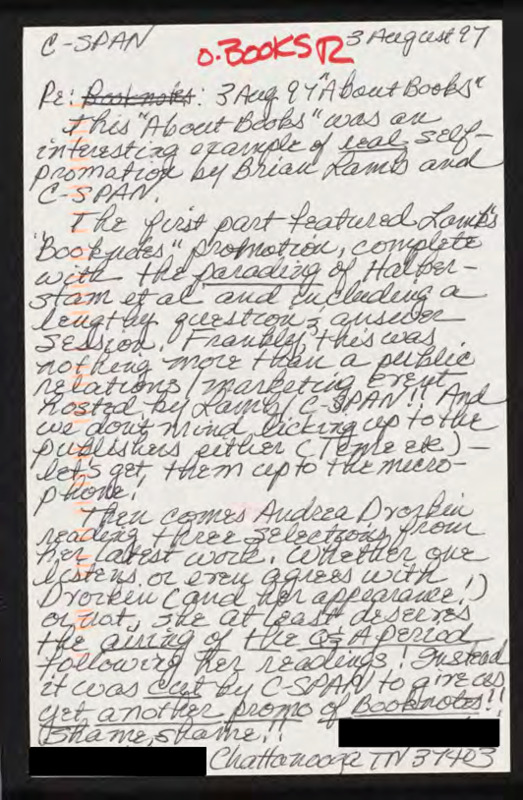 C-SPAN
O.BOOKS 12
3 August 97
Re: Booknotes: 3 Aug 97 "About Books"
This "About Books" was an
interesting example of real self-
promotion by Brian Lamb and
C-SPAN.
The first part featured Lamb's
"Booknotes" promotion, complete
with the parading of Halber-
stam et al and including a
lengthy question & answer
session. Frankly, this was
nothing more than a public
relations/marketing event
hosted by Lamb/C-SPAN!! And
we don't mind licking up to the
publishers either (Time etc) -
let's get them up to the micro-
phone!
Then comes Andrea Dworkin
reading three selections from
her latest work. Whether one
listens, or even agrees with
Dworkin (and her appearance!)
or not, she at least deserves
the airing of the Q & A period
following her readings! Instead
it was cut by C-SPAN to give us
yet another promo of Booknotes!!
Shame, shame!!
Chattanooga TN 37403